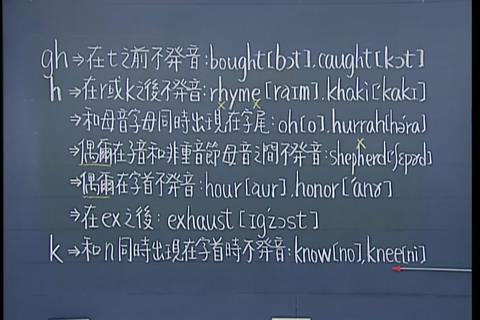 gh⇒在t之前不發音:bought[bɔt].caught[kɔt]
h⇒在r或k之後不發音:rhyme[raɪm].khaki[kakɪ]
⇒和母音字母同時出現在字尾:oh[o].hurrah[həra]
⇒偶爾在子音和非重音節母音之間不發音:shepherd[ˈʃɛpəd]
⇒偶爾在字首不發音:hour[aur].honor[ˈanɚ]
⇒在ex之後:exhaust[ɪgˈzɔst]
k⇒和n同時出現在字首時不發音:know[no],knee[ni]